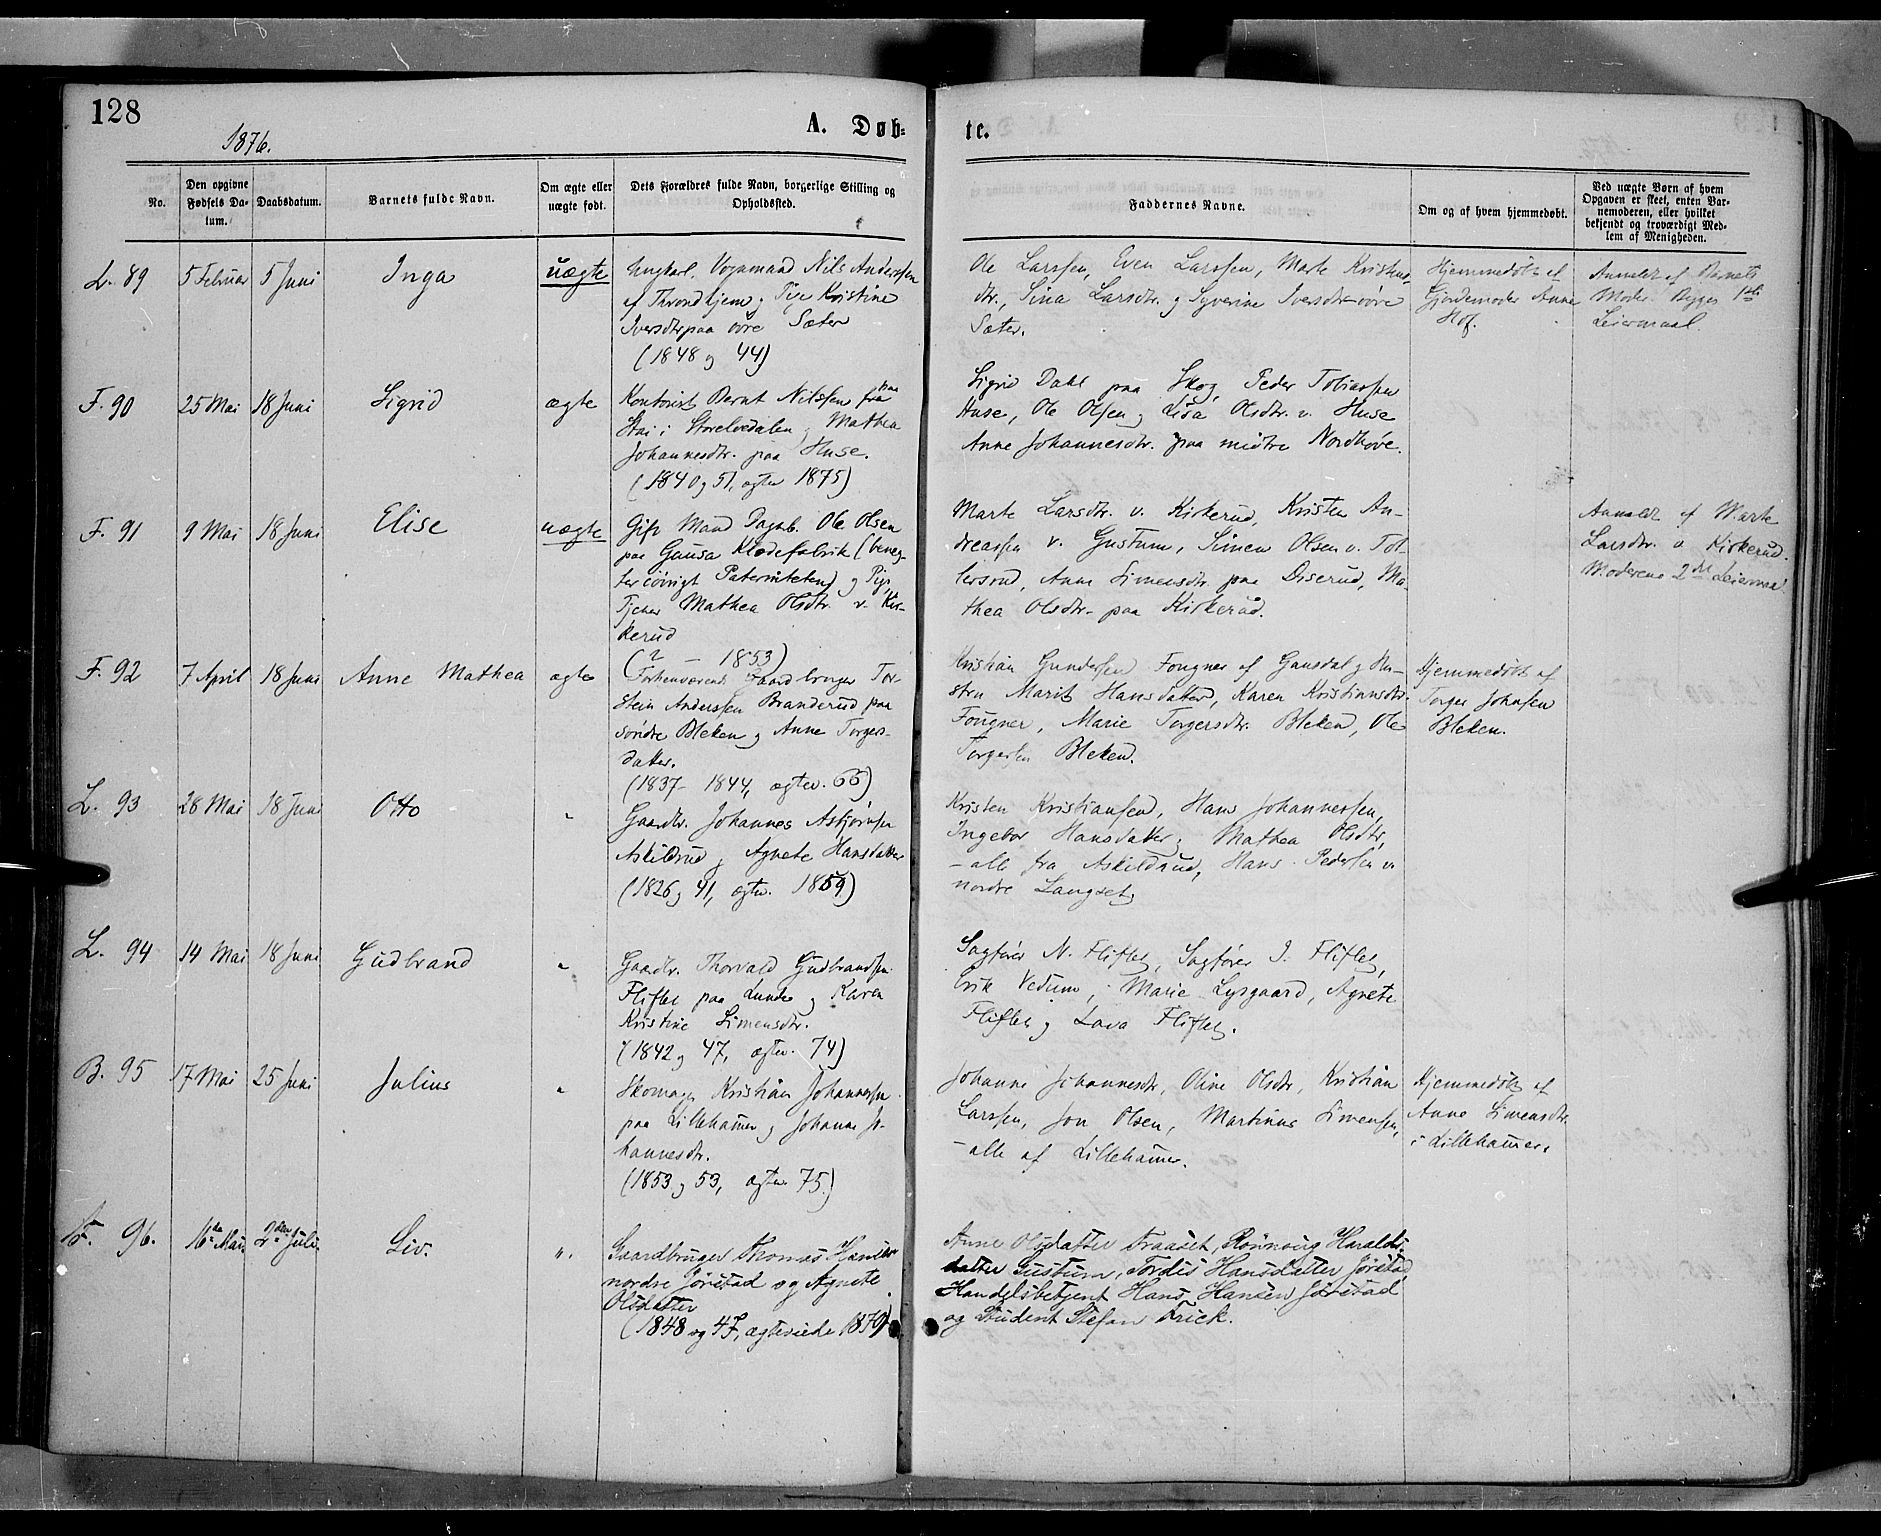 128
1876.
A. Døb-
te.
No.
Den opgivne Fødsels Da-tum.
Daabsdatum.
Barnets fulde Navn.
Om ægte eller uægte født.
Dets Forældres fulde Navn, borgerlige Stilling og Opholdssted.
Faddernes Navne.
Om og af hvem hjemmedøbt.
Ved uægte Børn af hvem Opgaven er skeet, enten Bar-nemoderen, eller hvilket bekjendt og troværdigt Med-lem af Menigheden.
L. 89
5 Februar
5 Juni
Inga
uægte
Ungkarl. Vognmand Nils Anderssen
af Throndhjem og Pige Kristine
Iversdtr paa övre Sæter
(1848 og 44)
Ole Larssen, Even Larssen, Marte Kristens-
dtr., Sina Larsdtr. og Syverine Iversdtr övre
Sæter.
Hjemmedøbt af
Gjordemoder Anne
Hof.
Anmeldt af Barnets
Moder. Begges 1ste
Leiermaal.
F. 90
25 Mai
18 Juni
Sigrid
ægte
Kontorist Bernt Nilssen fra
Stai i Storelvedalen og Mathea
Johannesdtr. paa Huse.
(1840 og 51, ægtev 1875)
Sigrid Dahl paa Skog, Peder Tobiassen
Huse, Ole Olsen og Lisa Olsdtr. v. Huse
Anne Johannesdtr. paa midtre Nordhove.
F. 91
9 Mai
18 Juni
Elise
uægte
Gift Mand Dagarb. Ole Olsen
paa Gausa Klædefabrik (beneg-
ter iövrigt Paterniteten) og Pige,
Tjener Mathea Olsdtr. v. Kir-
kerud
(? – 1853)
Marte Larsdtr. v. Kirkerud, Kristen An-
dreassen v. Gustum, Simen Olsen v. Tol-
lersrud, Anne Simensdtr. paa Diserud, Ma-
thea Olsdtr. paa Kirkerud.
Anmeldt af Marte
Larsdtr. v. Kirkerud.
Moderens 2det Leiermaal
F. 92
7 April
18 Juni
Anne Mathea
ægte
Forhenværende Gaardbruger Tor-
stein Anderssen Branderud paa
söndre Bleken og Anne Torgers-
datter.
(1837 – 1844, ægtev. 66)
Kristian Gundersen Fougner af Gausdal og Hu-
stru Marit Hansdatter, Karen Kristiansdtr.
Fougner, Marie Torgersdtr. Bleken, Ole
Torgersen Bleken.
Hjemmedøbt af
Torger Johnsen
Bleken.
L. 93
28 Mai
18 Juni
Otto
"
Gaardbr. Johannes Asbjörnsen
Askildrud og Agnete Hansdatter
(1826 og 41, ægtev. 1859)
Kristen Kristiansen, Hans Johannessen,
Ingebor Hansdatter og Mathea Olsdtr,
– alle fra Askildrud, Hans Pedersen v.
nordre Langset
L. 94
14 Mai
18 Juni
Gudbrand
"
Gaardbr. Thorvald Gudbrandsen
Fliflet paa Lunde og Karen
Kristine Simensdtr.
(1842 og 47, ægtev. 74)
Sagfører N. Fliflet, Sagfører J. Fliflet,
Erik Vedum, Marie Lysgaard, Agnete
Fliflet og Lava Fliflet.
B. 95
17 Mai
25 Juni
Julius
"
Skomager Kristian Johannessen
paa Lillehamer og Johanne Jo-
hannesdtr.
(1853 og 53, ægtev 75)
Johanne Johannesdtr, Oline Olsdtr, Kristian
Larssen, Jon Olsen, Martinus Simensen,
– alle af Lillehamer.
Hjemmedøbt af
Anne Simensdtr.
i Lillehamer.
F. 96.
16de Mai
2den Juli
Liv.
".
Gaardbruger Thomas Hansen
nordre Jörstad og Agnete
Olsdatter
(1848 og 47, ægteviede 1870)
Anne Olsdatter Traaset, Rönnoug Haralds-
datter Gustum, Tordis Hansdatter Jörstad,
Handelsbetjent Hans Hansen Jörstad
og Student Stefan Frich.